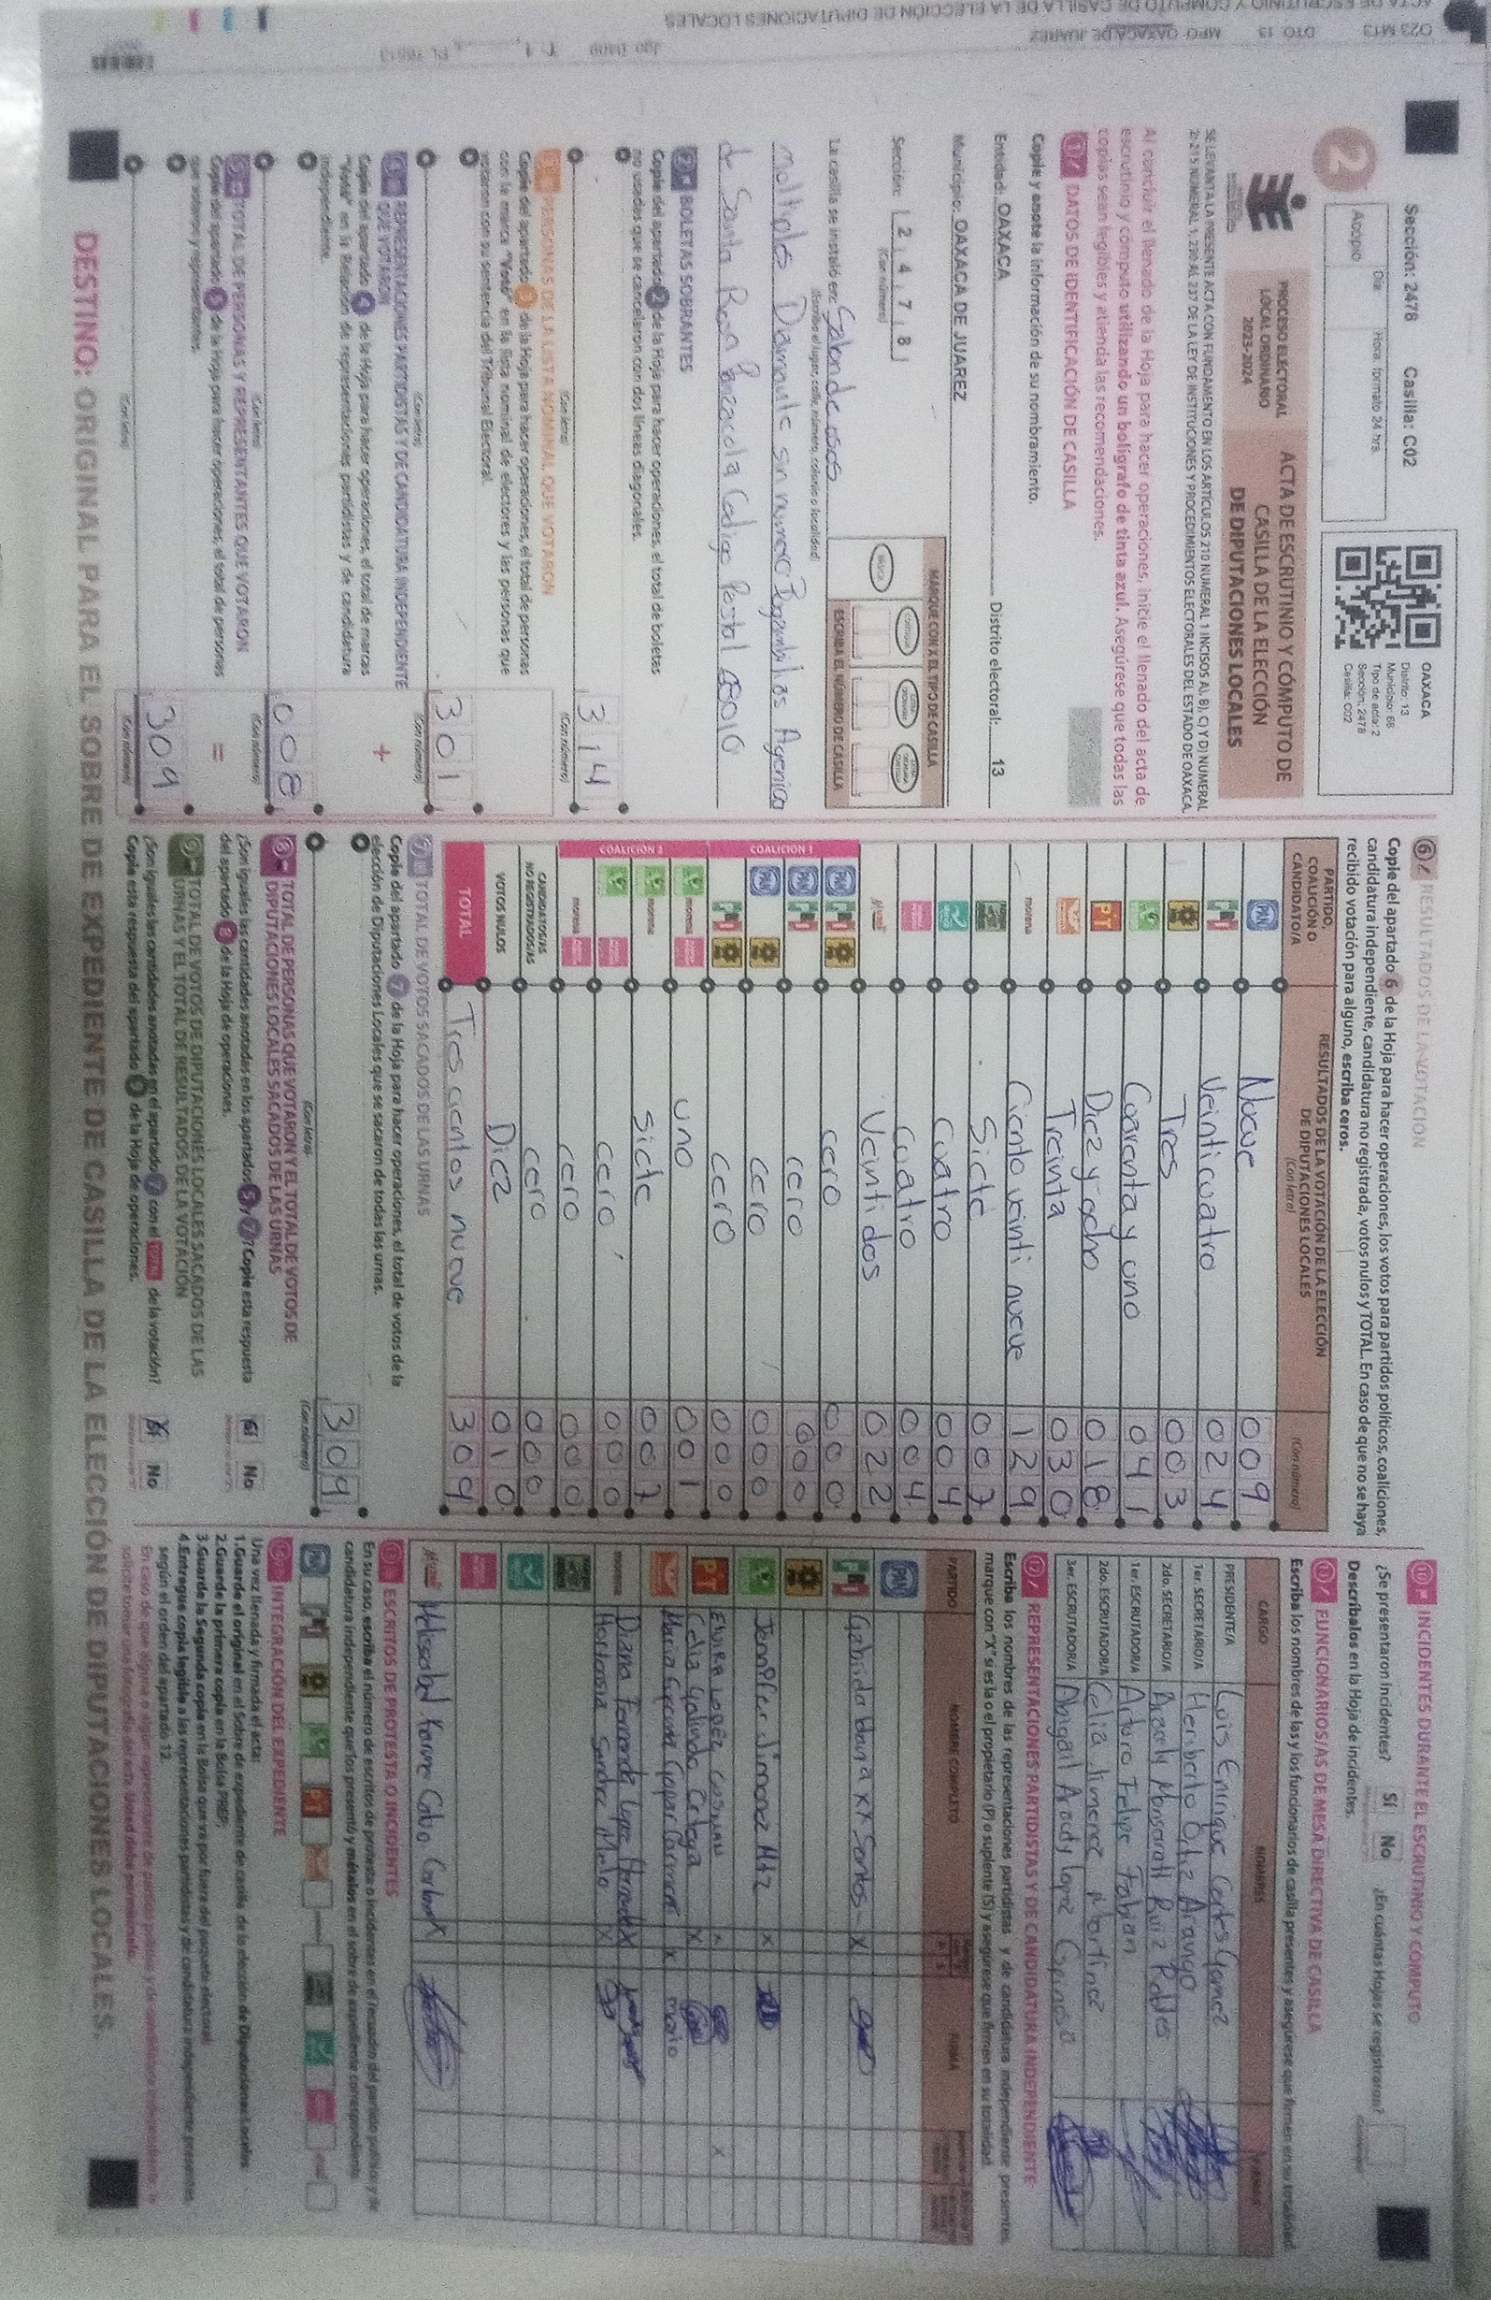 Sección: 2478 Casilla: C02
Día Hora: formato 24 hrs.
Acopio
OAXACA
Distrito: 13
Municipio: 66
Tipo de acta: 2
Sección: 2478
Casilla: C02
2
PROCESO ELECTORAL
LOCAL ORDINARIO
2023-2024
ACTA DE ESCRUTINIO Y CÓMPUTO DE
CASILLA DE LA ELECCIÓN
DE DIPUTACIONES LOCALES
Al concluir el llenado de la Hoja para hacer operaciones, inicie el llenado del acta de
escrutinio y cómputo utilizando un bolígrafo de tinta azul. Asegúrese que todas las
copias sean legibles y atienda las recomendaciones.
1 DATOS DE IDENTIFICACIÓN DE CASILLA
Copie y anote la información de su nombramiento.
Entidad: OAXACA Distrito electoral: 13
Municipio: OAXACA DE JUAREZ
Sección: 2 4 7 8
(Con número)
MARQUE CON X EL TIPO DE CASILLA
ESCRIBA EL NÚMERO DE CASILLA
La casilla se instaló en: Salon de usos
(Escriba el lugar, calle, número, colonia o localidad)
multiples Diamante sin numero
de Santa Rosa Panzacola Codigo Postal 68010
2 BOLETAS SOBRANTES
Copie del apartado 2 de la Hoja para hacer operaciones, el total de boletas
no usadas que se cancelaron con dos líneas diagonales.
314
(Con letra) (Con número)
3 PERSONAS DE LA LISTA NOMINAL QUE VOTARON
Copie del apartado 3 de la Hoja para hacer operaciones, el total de personas
con la marca "Votó" en la lista nominal de electores y las personas que
votaron con su sentencia del Tribunal Electoral.
301
(Con letra) (Con número)
4 REPRESENTACIONES PARTIDISTAS Y DE CANDIDATURA INDEPENDIENTE
QUE VOTARON
+
Copie del apartado 4 de la Hoja para hacer operaciones, el total de marcas
"Votó" en la Relación de representaciones partidistas y de candidatura
independiente.
008
(Con letra) (Con número)
5 TOTAL DE PERSONAS Y REPRESENTANTES QUE VOTARON
=
Copie del apartado 5 de la Hoja para hacer operaciones, el total de personas
que votaron y representantes.
309
(Con letra) (Con número)
6 RESULTADOS DE LA VOTACIÓN
Copie del apartado 6 de la Hoja para hacer operaciones, los votos para partidos políticos, coaliciones,
candidatura independiente, candidatura no registrada, votos nulos y TOTAL. En caso de que no se haya
recibido votación para alguno, escriba ceros.
PARTIDO,
COALICIÓN O
CANDIDATO/A
RESULTADOS DE LA VOTACIÓN DE LA ELECCIÓN
DE DIPUTACIONES LOCALES
(Con letra) (Con número)
PAN Nueve 009
PRI Veinticuatro 024
Tres 003
Cuarenta y uno 041
PT Diez y ocho 018
Treinta 030
morena Ciento veinti nueve 129
Siete 007
Cuatro 004
Cuatro 004
Veintidos 022
COALICIÓN 1
cero 000
cero 000
cero 000
cero 000
COALICIÓN 2
uno 001
siete 007
cero 000
cero 000
CANDIDATOS/AS
NO REGISTRADOS/AS cero 000
VOTOS NULOS Diez 010
TOTAL Trescientos nueve 309
7 TOTAL DE VOTOS SACADOS DE LAS URNAS
Copie del apartado 7 de la Hoja para hacer operaciones, el total de votos de la
elección de Diputaciones Locales que se sacaron de todas las urnas.
309
(Con letra) (Con número)
8 TOTAL DE PERSONAS QUE VOTARON Y EL TOTAL DE VOTOS DE
DIPUTACIONES LOCALES SACADOS DE LAS URNAS
¿Son iguales las cantidades anotadas en los apartados 5 y 7? Copie esta respuesta
del apartado 8 de la Hoja de operaciones.
Sí No
9 TOTAL DE VOTOS DE DIPUTACIONES LOCALES SACADOS DE LAS
URNAS Y EL TOTAL DE RESULTADOS DE LA VOTACIÓN
¿Son iguales las cantidades anotadas en el apartado 7 con el TOTAL de la votación?
Copie esta respuesta del apartado 9 de la Hoja de operaciones.
Sí No
10 INCIDENTES DURANTE EL ESCRUTINIO Y CÓMPUTO
¿Se presentaron incidentes? Sí No ¿En cuántas Hojas se registraron?
Descríbalos en la Hoja de incidentes.
11 FUNCIONARIOS/AS DE MESA DIRECTIVA DE CASILLA
Escriba los nombres de las y los funcionarios de casilla presentes y asegúrese que firmen en su totalidad
CARGO NOMBRES FIRMAS
PRESIDENTE/A Luis Enrique Cortes Gomez
1er. SECRETARIO/A Heriberto Ortiz Arango
2do. SECRETARIO/A Araceli Monserratt Ruiz Robles
1er. ESCRUTADOR/A Arturo Felipe Fabian
2do. ESCRUTADOR/A Celia Jimenez Martinez
3er. ESCRUTADOR/A Abigail Aracely Lopez Espinosa
12 REPRESENTACIONES PARTIDISTAS Y DE CANDIDATURA INDEPENDIENTE
Escriba los nombres de las representaciones partidistas y de candidatura independiente presentes,
marque con "X" si es la o el propietario (P) o suplente (S) y asegúrese que firmen en su totalidad.
PARTIDO NOMBRE COMPLETO FIRMA
Jennifer Jimenez Mtz X
ELVIRA LOPEZ GUZMAN
Celia Galindo Ortega X
Diana Fernanda Lopez X
Hortensia X
X
13 ESCRITOS DE PROTESTA O INCIDENTES
En su caso, escriba el número de escritos de protesta o incidentes en el recuadro del partido político y de
candidatura independiente que los presentó y métalos en el sobre de expediente correspondiente
INTEGRACIÓN DEL EXPEDIENTE
Una vez llenada y firmada el acta:
1.Guarde el original en el Sobre de expediente de casilla de la elección de Diputaciones Locales
2.Guarde la primera copia en la Bolsa PREP;
3.Guarde la Segunda copia en la Bolsa que va por fuera del paquete electoral
4.Entregue copia legible a las representaciones partidistas y de candidatura independiente presentes,
según el orden del apartado 12.
DESTINO: ORIGINAL PARA EL SOBRE DE EXPEDIENTE DE CASILLA DE LA ELECCIÓN DE DIPUTACIONES LOCALES.